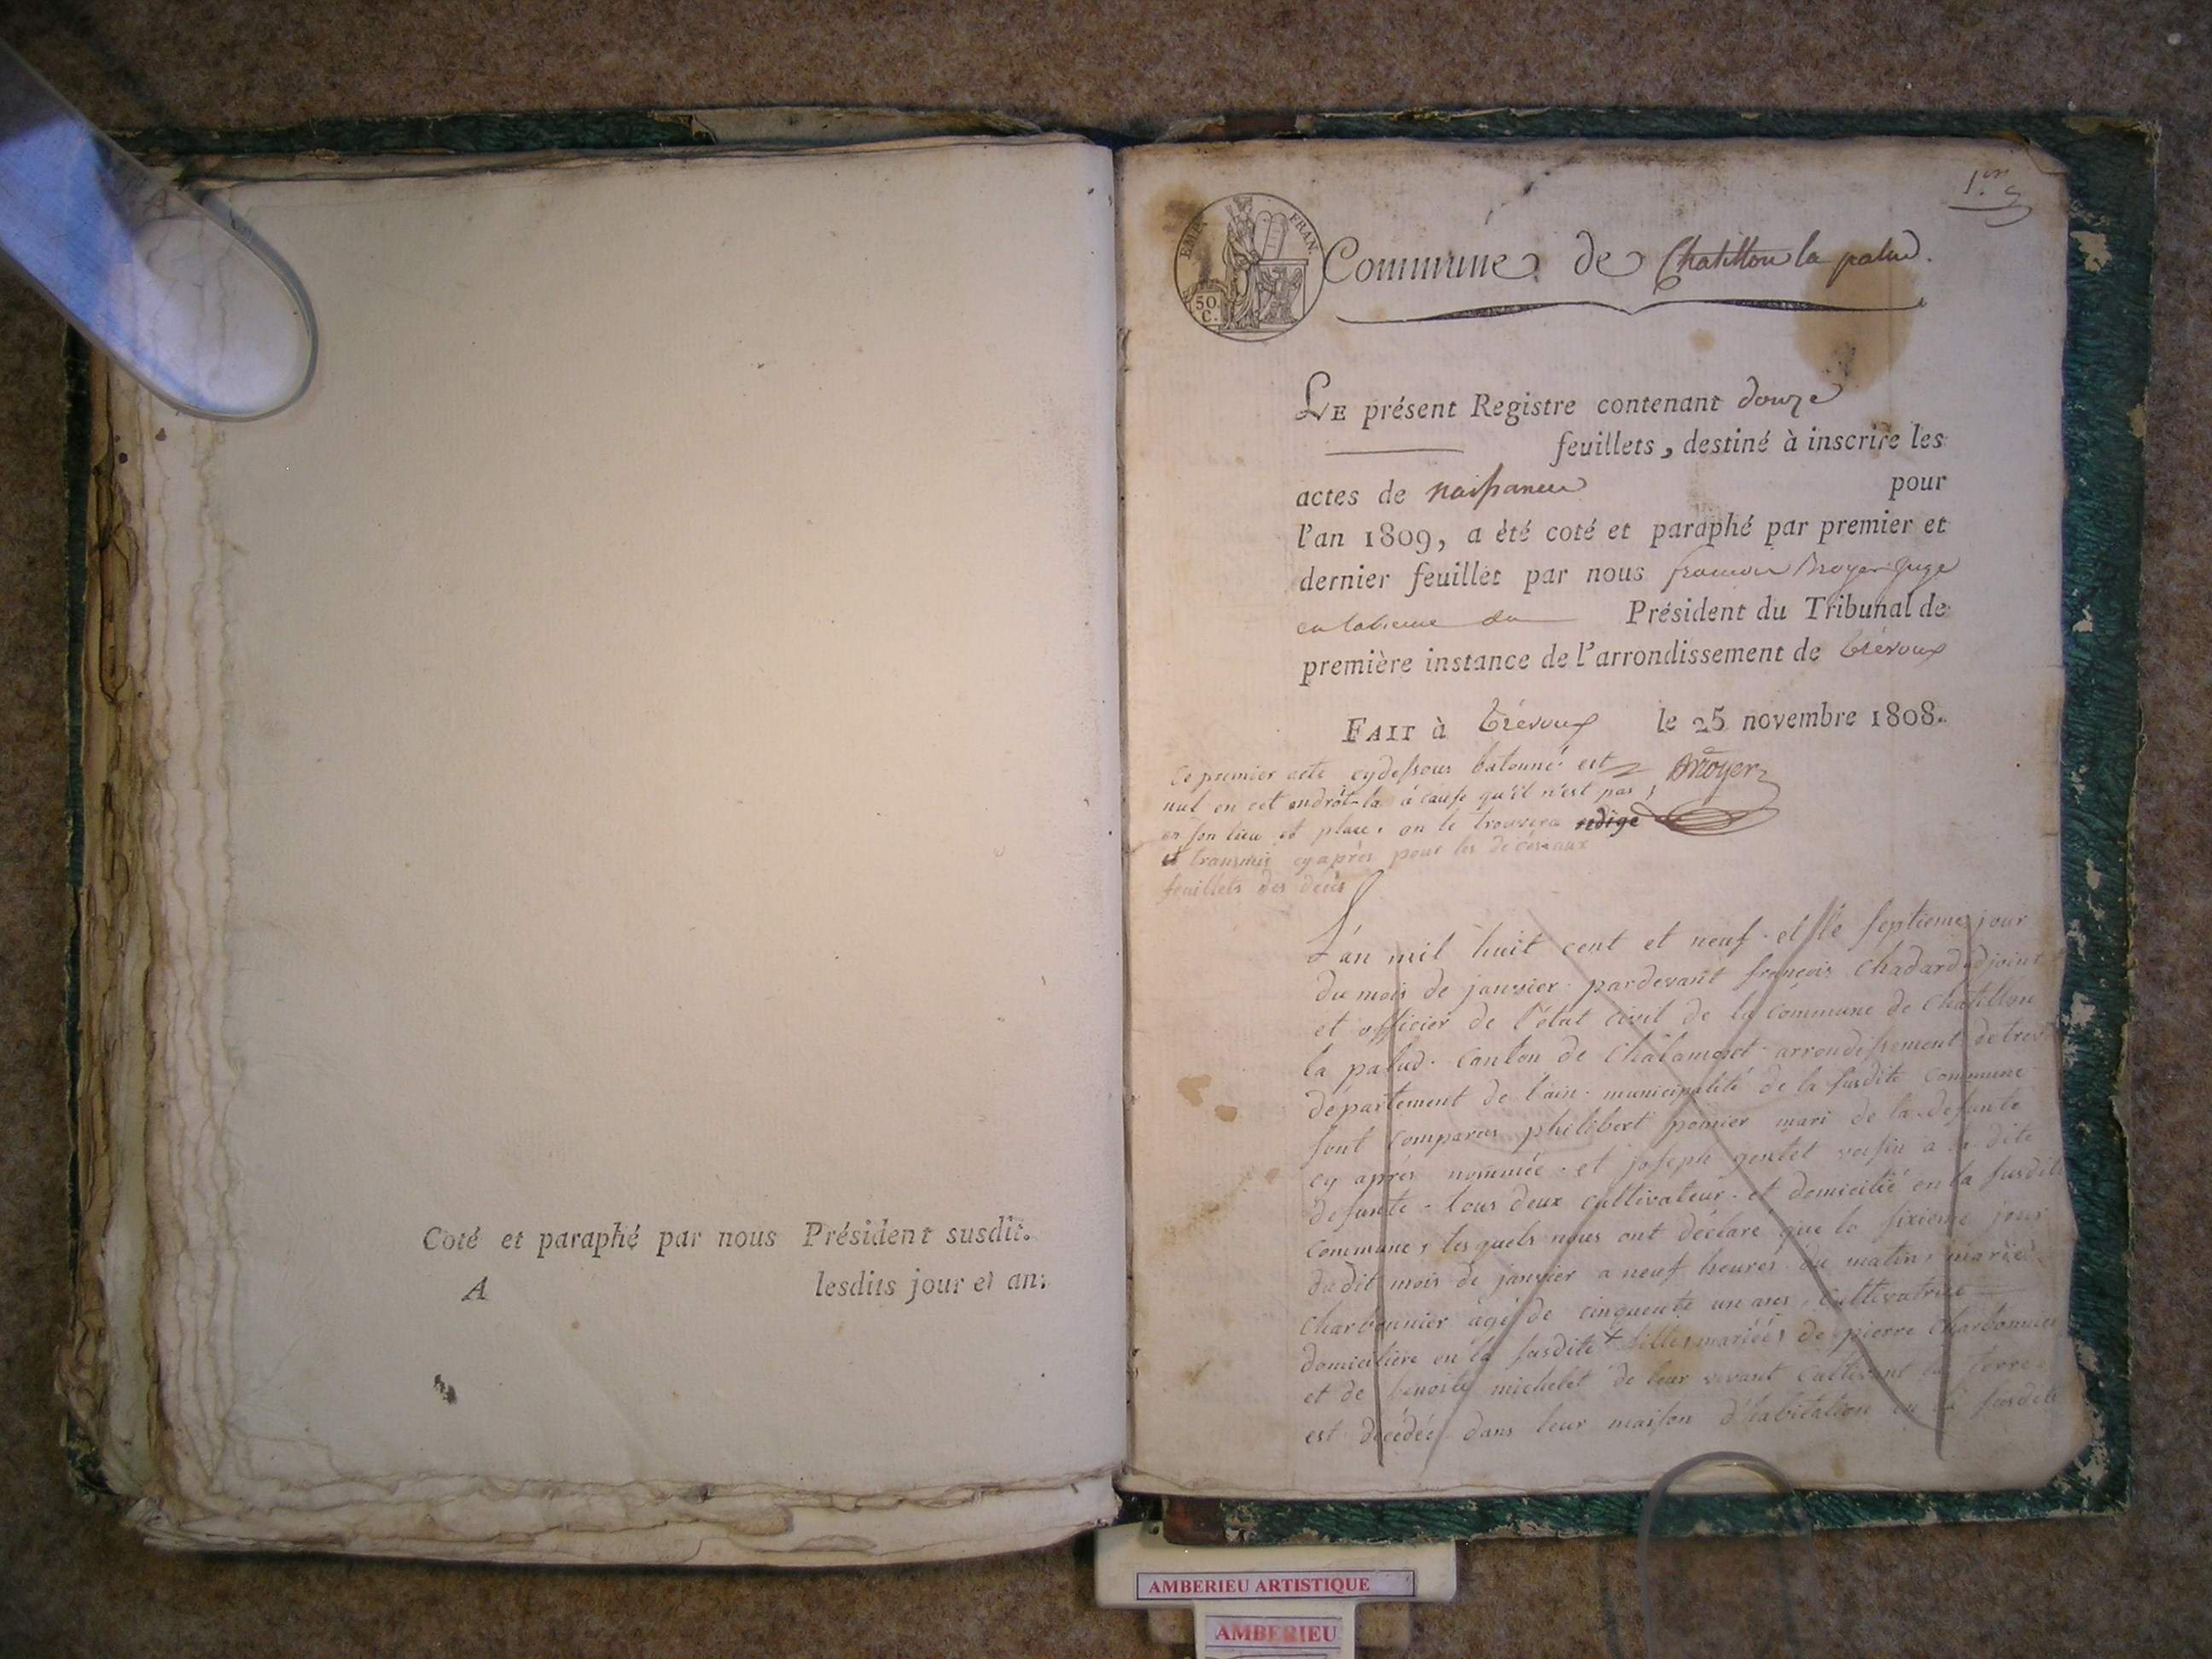 Coté et paraphé par nous Président susdit.
A lesdits jour et an.
1.er
EMP. FRAN.
50 C.
Commune de Chatillon la palud.
LE présent Registre contenant douze
feuillets, destiné à inscrire les
actes de naissance pour
l'an 1809, a èté coté et paraphé par premier et
dernier feuillet par nous françois Broyer Juge
Président du Tribunal de
première instance de l'arrondissement de trévoux
FAIT à trévoux le 25 novembre 1808.
Ce premier acte cydessous batonné est
Broyer
nul en cet endroit-la à cause qu'il n'est pas
en son lieu et place. on le trouvera redigé
et transmis cy après pour les décès aux
feuillets des décès
L'an mil huit cent et neuf et le septieme jour
du mois de janvier pardevant françois Chadard adjoint
et officier de l'état civil de la commune de Chatillon
la palud. Canton de Chalamont arrondissement de trev
département de l'ain municipalité de la susdite commune
sont comparus philibert pomier mari de la defunte
cy après nommée et joseph gentet voisin a la dite
defunte. tous deux cultivateur et domicilié en la susdite
commune, lesquels nous ont déclaré que le sixieme jour
dudit mois de janvier a neuf heures du matin, marie
Charbonnier agé de cinquente un ans, Cultivatrice
domiciliere en la susdite + fille mariée de pierre Charbonnier
et de benoite michelet de leur vivant Cultivant la terre
est décédée dans leur maison d'habitation en la susdite
AMBERIEU ARTISTIQUE
AMBERIEU